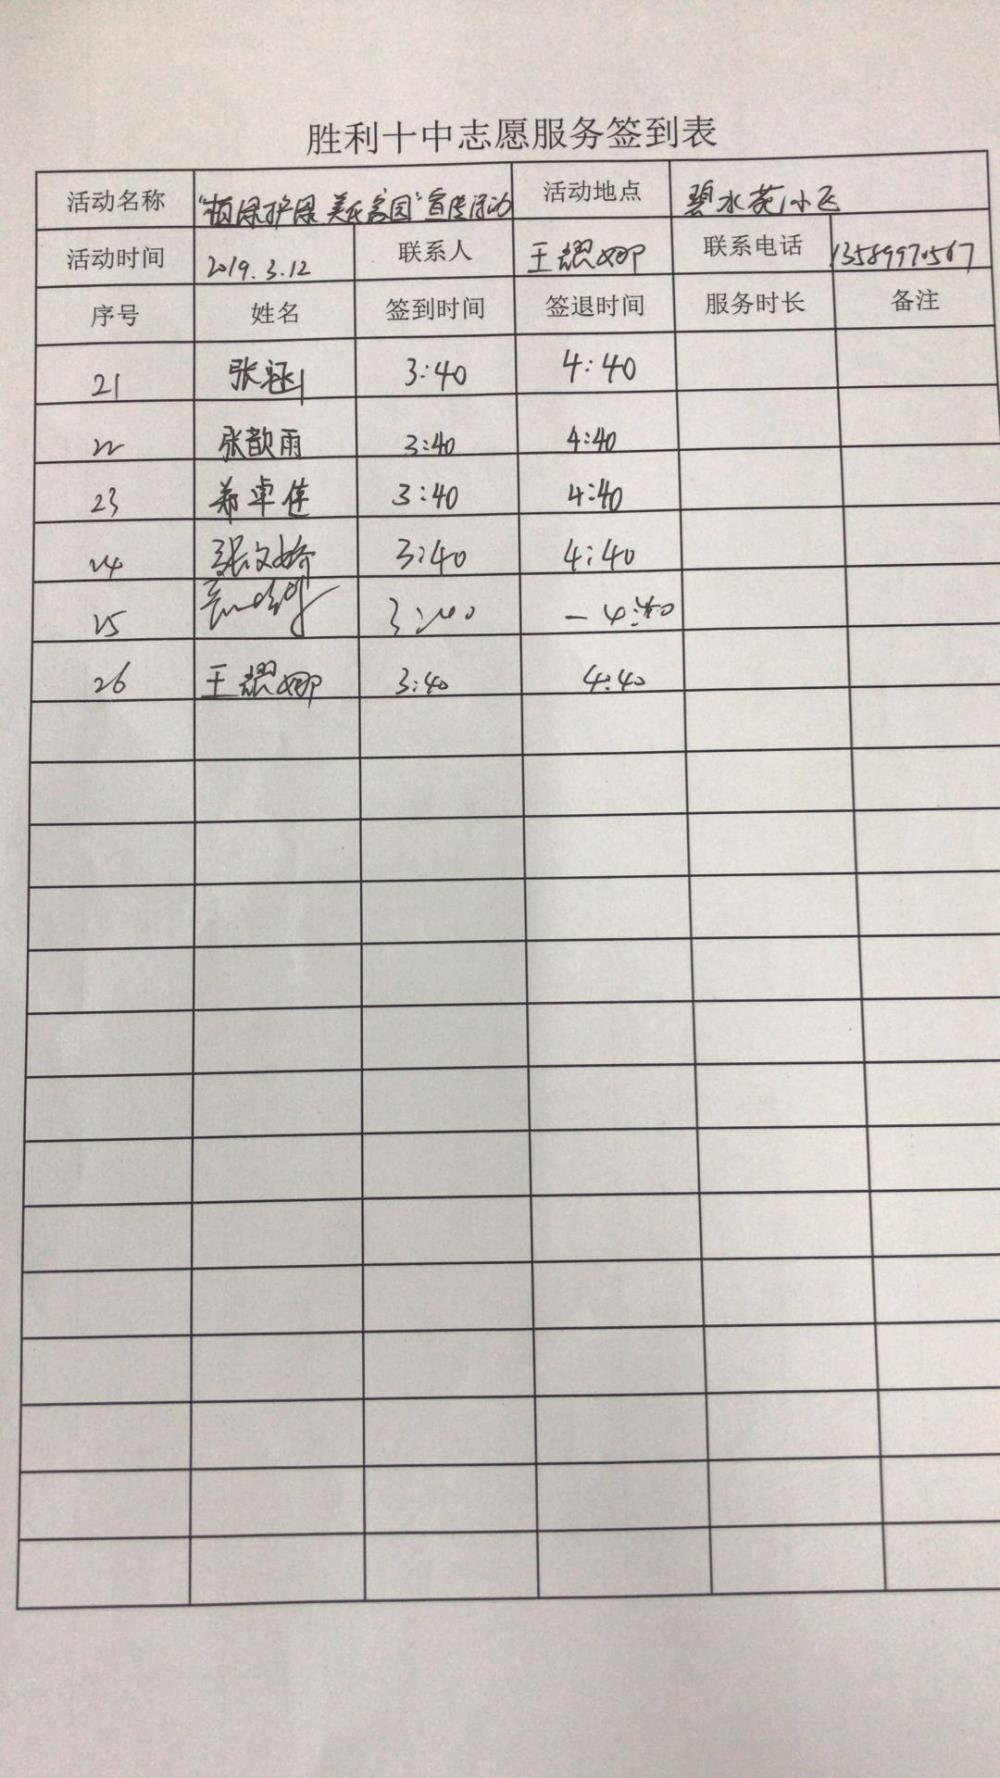 胜利十中志愿服务签到表
活动名称 "植绿护绿 美化家园"宣传活动 活动地点 碧水苑小区
活动时间 2019.3.12 联系人 王耀娜 联系电话 13589970567
序号 姓名 签到时间 签退时间 服务时长 备注
21 张 3:40 4:40
22 张歆雨 3:40 4:40
23 郑卓佳 3:40 4:40
24 张文娇 3:40 4:40
25 3:40 - 4:40
26 王耀娜 3:40 4:40